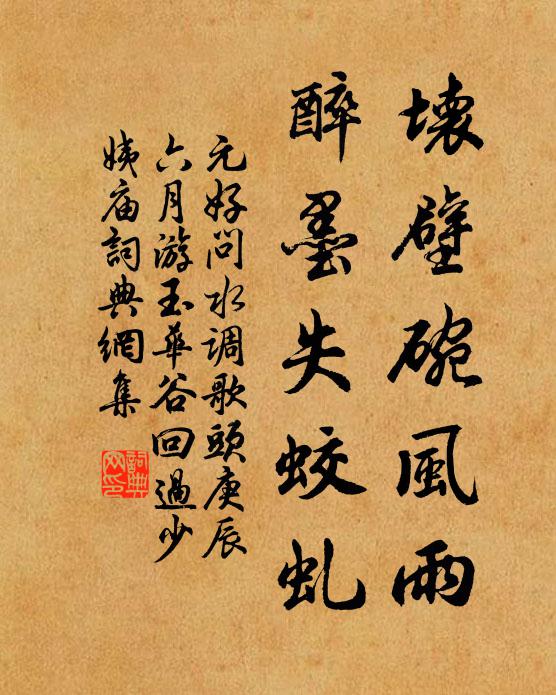 壊壁碗風雨
醉墨失蛟虬
元好问水调歌頭庚辰
六月游玉華谷回過少
姨庙詞典網集
詞典網印